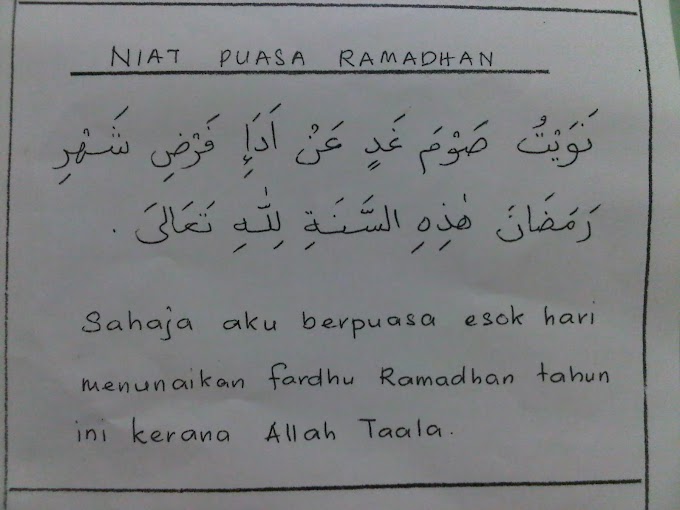 NIAT PUASA RAMADHAN
نَوَيْتُ صَوْمَ غَدٍ عَنْ اَدَإِ فَرْضِ شَهْرِ
رَمَضَانَ هٰذِهِ السَّنَةِ لِلّٰهِ تَعَالَىٰ .
Sahaja aku berpuasa esok hari
menunaikan fardhu Ramadhan tahun
ini kerana Allah Taala.